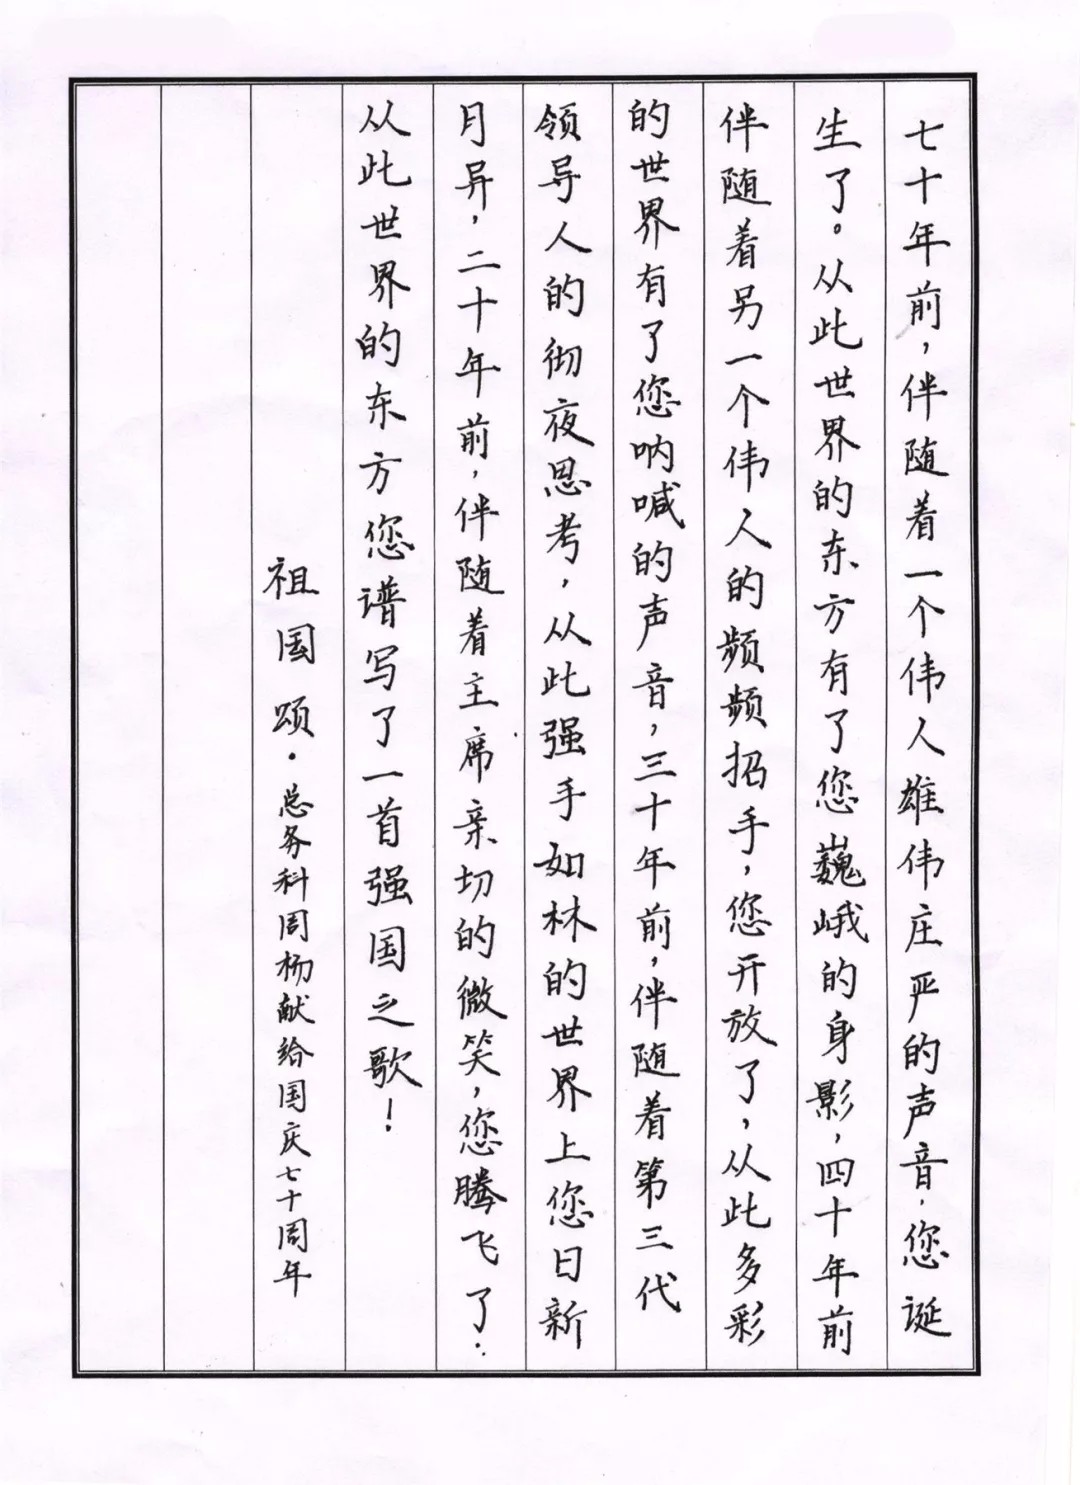 七十年前，伴随着一个伟人雄伟庄严的声音，您诞
生了。从此世界的东方有了您巍峨的身影，四十年前
伴随着另一个伟人的频频招手，您开放了，从此多彩
的世界有了您呐喊的声音，三十年前，伴随着第三代
领导人的彻夜思考，从此强手如林的世界上您日新
月异，二十年前，伴随着主席亲切的微笑，您腾飞了：
从此世界的东方您谱写了一首强国之歌！
祖国颂·总务科周杨献给国庆七十周年